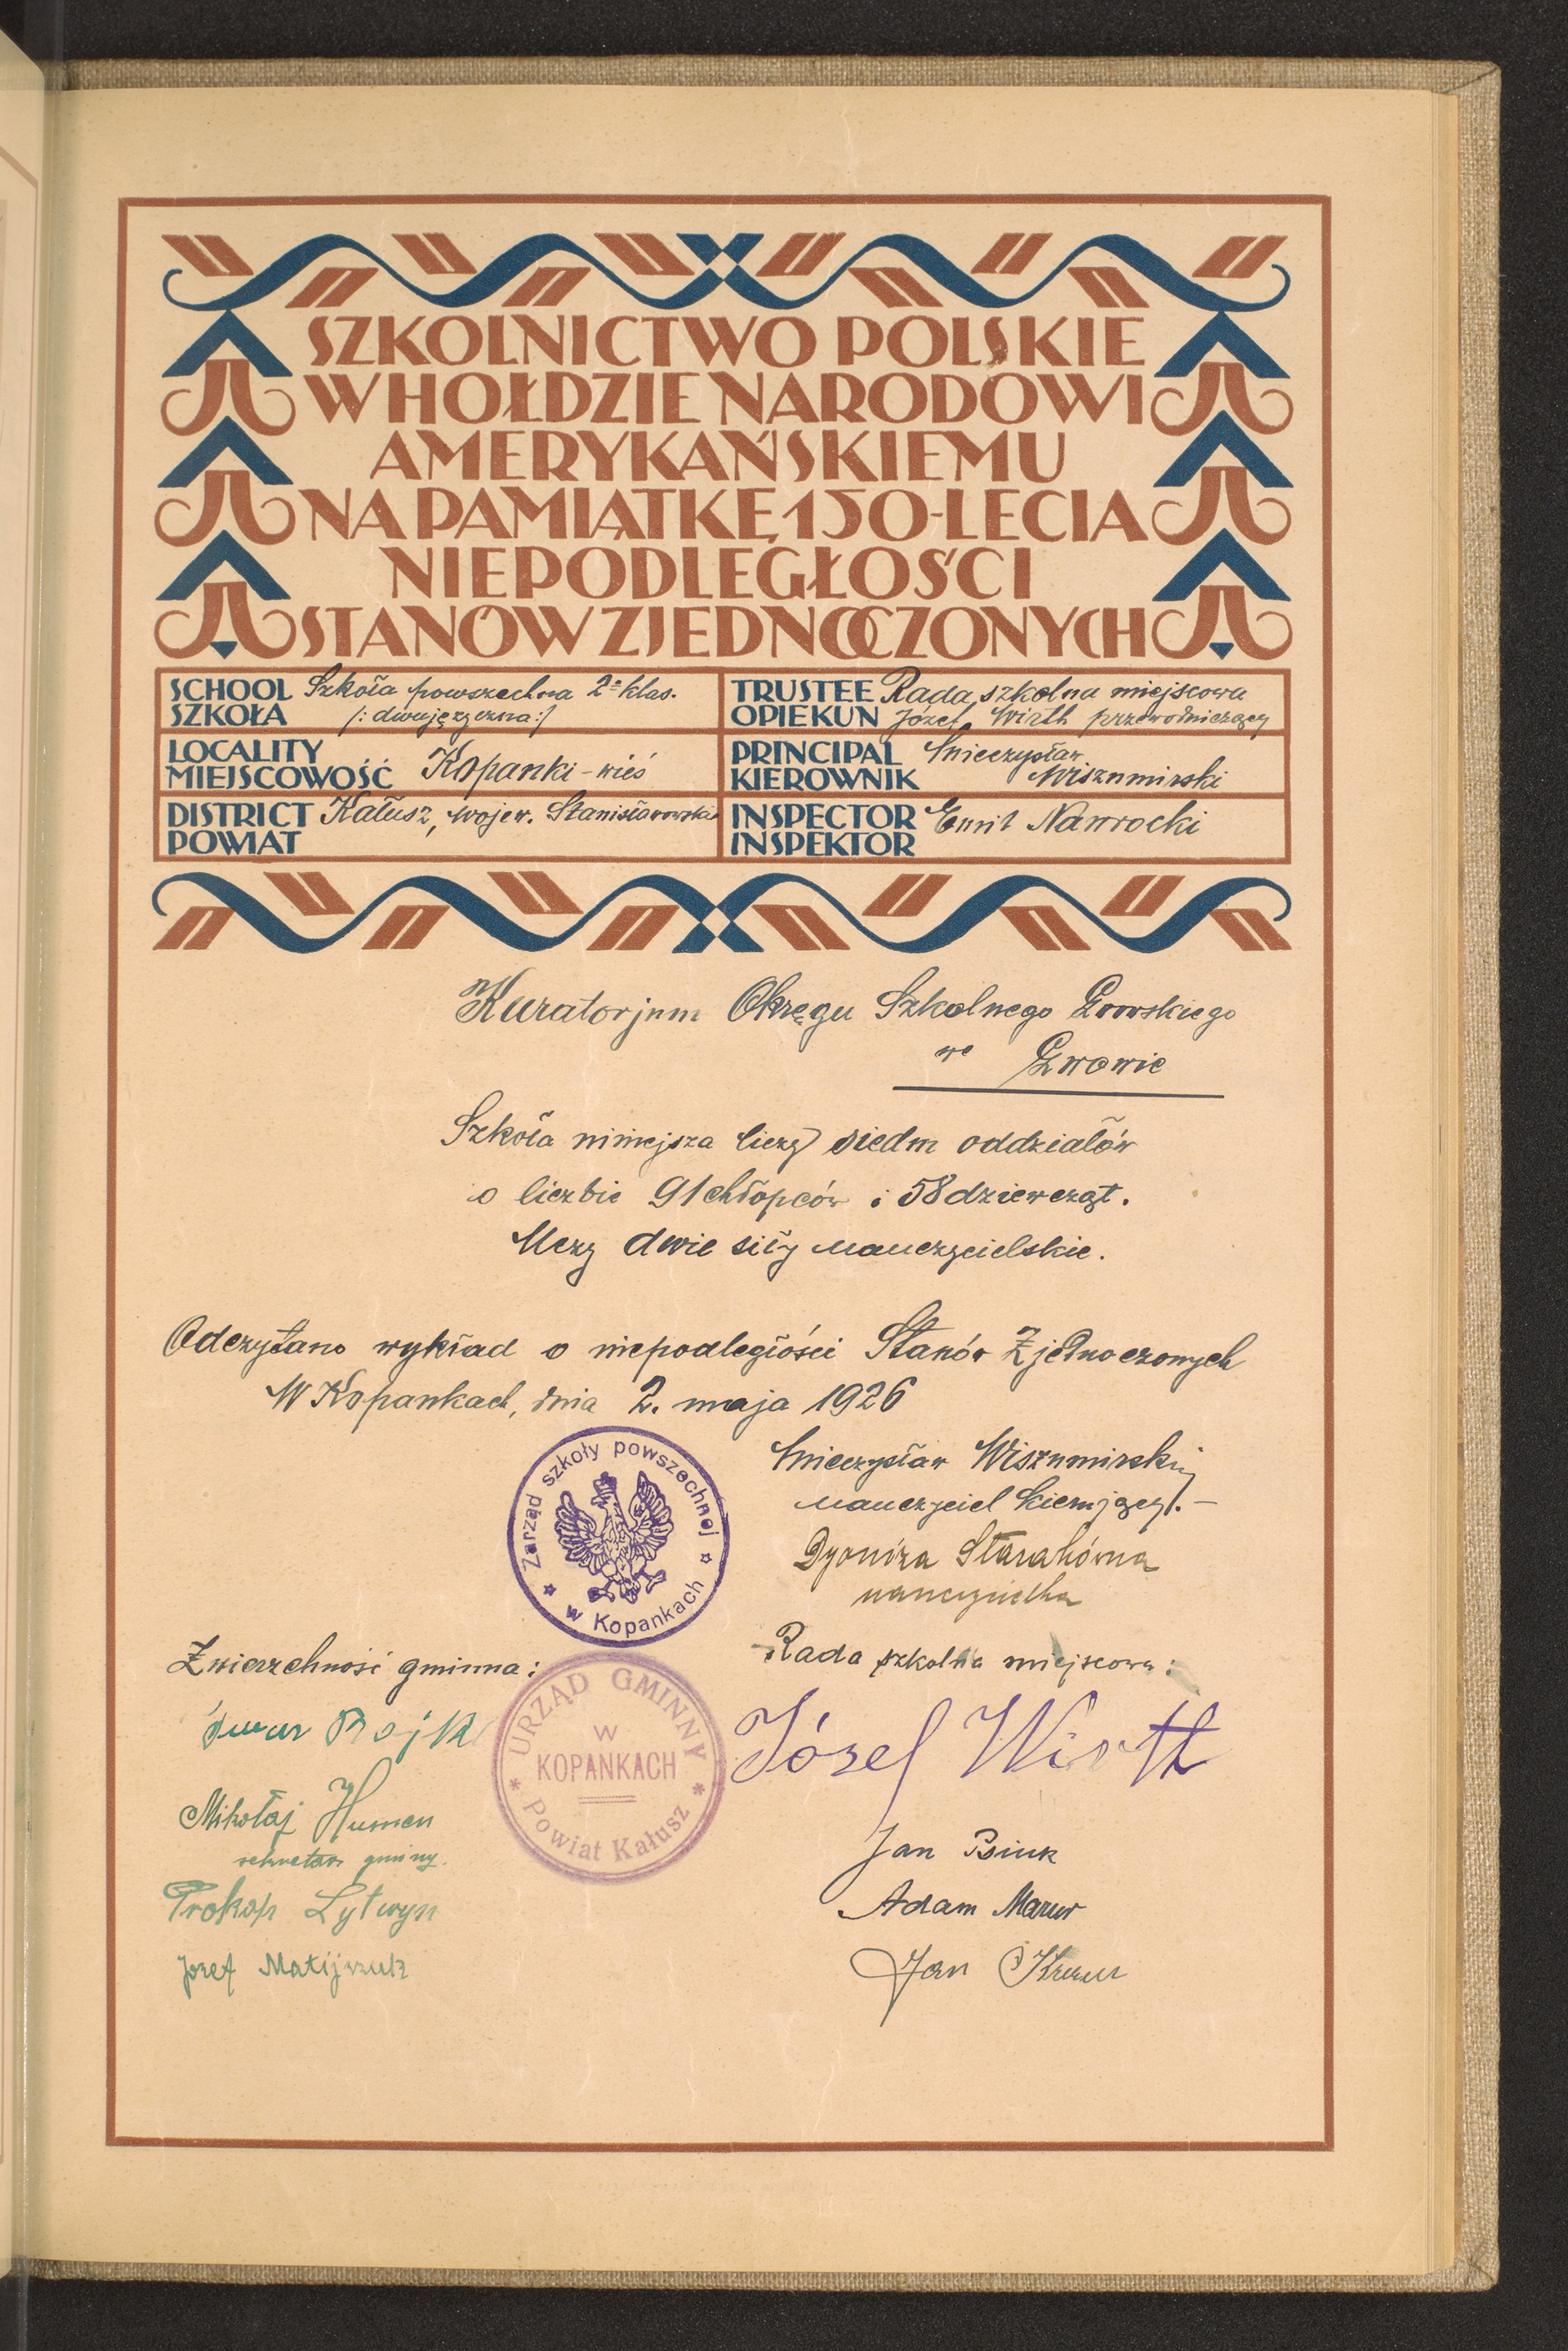 SZKOLNICTWO POLSKIE
W HOŁDZIE NARODOWI
AMERYKAŃSKIEMU
NA PAMIĄTKĘ 150-LECIA
NIEPODLEGŁOŚCI
STANÓW ZJEDNOCZONYCH
SCHOOL Szkoła powszechna 2-klas.
SZKOŁA /:dwujęzyczna:/
TRUSTEE Rada szkolna miejscowa
OPIEKUN Józef Wirth przewodniczący
LOCALITY
MIEJSCOWOŚĆ Kopanki-wieś
PRINCIPAL Mieczysław
KIEROWNIK Wisznmirski
DISTRICT Kałusz, wojew. Stanisławowskie
POWIAT
INSPECTOR Emil Nawrocki
INSPEKTOR
Kuratorjum Okręgu Szkolnego Lwowskiego
we Lwowie
Szkoła niniejsza liczy siedm oddziałów
o liczbie 91 chłopców i 58 dziewcząt.
Uczy dwie siły nauczycielskie.
Odczytano wykład o niepodległości Stanów Zjednoczonych
W Kopankach, dnia 2. maja 1926
Zarząd szkoły powszechnej
w Kopankach
Mieczysław Wisznmirski
nauczyciel kierujący.-
Dyoniza
nauczycielka
Zwierzchność gminna:
Rada szkolna miejscowa:
URZĄD GMINNY
W
KOPANKACH
Powiat Kałusz
Józef Wirth
Mikołaj Humen
sekretarz gminy.
Jan
Prokop Lytwyn
Adam Mazur
Józef
Jan